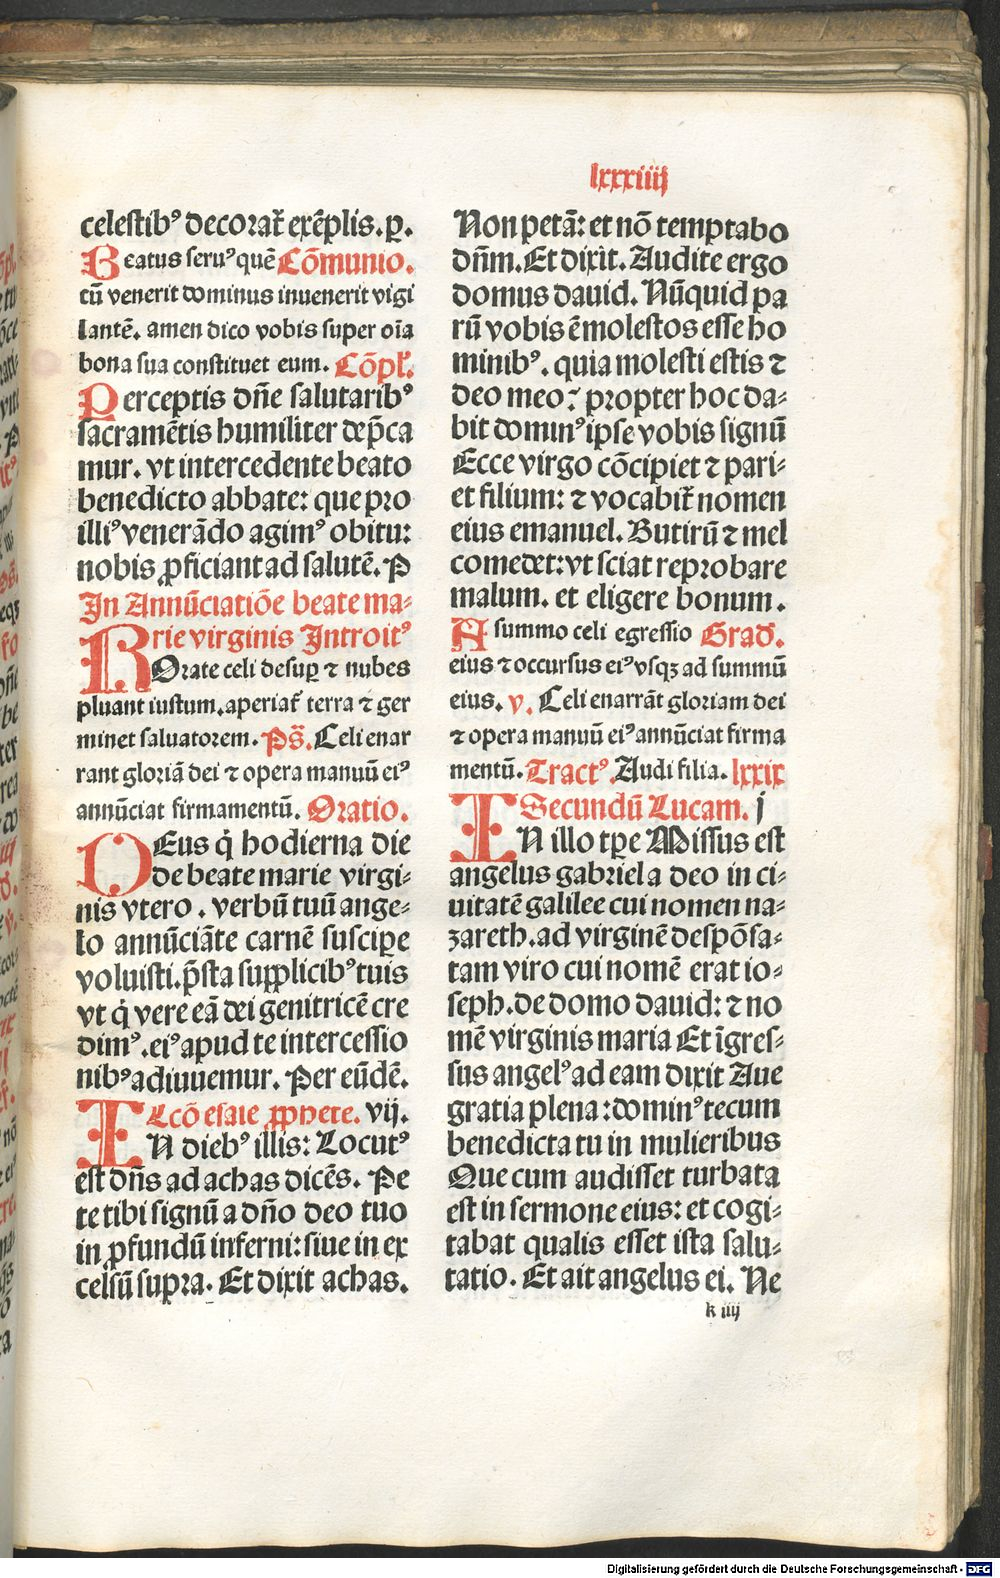 lxxxiiij
celestibꝰ decorat᷑ exēplis. p.
Beatus seruꝰ quē Cōmunio.
tū venerit dominus inuenerit vigi
lantē. amen dico vobis super oīa
bona sua constituet eum. Cōpl᷑.
Perceptis dn̄e salutaribꝰ
sacramētis humiliter dep̄ca
mur. vt intercedente beato
benedicto abbate: que pro
illiꝰ venerādo agimꝰ obitu:
nobis ꝓficiant ad salutē. P
In Annūciatiōe beate ma-
rie virginis Introitꝰ
ROrate celi desuꝑ ⁊ nubes
pluant iustum. aperiat᷑ terra ⁊ ger
minet saluatorem. Ps̄. Celi enar
rant gloriā dei ⁊ opera manuū eiꝰ
annūciat firmamentū. Oratio.
DEus q̇ hodierna die
de beate marie virgi-
nis vtero . verbū tuū ange-
lo annūciāte carnē suscipe
voluisti. p̄sta supplicibꝰ tuis
vt q̇ vere eā dei genitricē cre
dimꝰ. eiꝰ apud te intercessio
nibꝰ adiuuemur. Per eūdē.
Lcō esaie ꝓphete. vij.
IN diebꝰ illis: Locutꝰ
est dn̄s ad achas dicēs. Pe
te tibi signū a dn̄o deo tuo
in ꝓfundū inferni: siue in ex
celsū supra. Et dixit achas.
Non petā: et nō temptabo
dn̄m. Et dixit. Audite ergo
domus dauid. Nūquid pa
rū vobis ē molestos esse ho
minibꝰ. quia molesti estis ⁊
deo meo? propter hoc da-
bit dominꝰ ipse vobis signū
Ecce virgo cōcipiet ⁊ pari-
et filium: ⁊ vocabit᷑ nomen
eius emanuel. Butirū ⁊ mel
comedet: vt sciat reprobare
malum. et eligere bonum.
A summo celi egressio Grad.
eius ⁊ occursus eiꝰ vsqꝫ ad summū
eius. v. Celi enarrāt gloriam dei
⁊ opera manuū eiꝰ annūciat firma
mentū. Tractꝰ. Audi filia. lxxix
Secundū Lucam. j
IN illo tp̄e Missus est
angelus gabriel a deo in ci-
uitatē galilee cui nomen na-
zareth. ad virginē despōsa-
tam viro cui nomē erat io-
seph. de domo dauid: ⁊ no
mē virginis maria Et īgres-
sus angelꝰ ad eam dixit Aue
gratia plena: dominꝰ tecum
benedicta tu in mulieribus
Que cum audisset turbata
est in sermone eius: et cogi-
tabat qualis esset ista salu-
tatio. Et ait angelus ei. Ne
k iiij
Digitalisierung gefördert durch die Deutsche Forschungsgemeinschaft - DFG